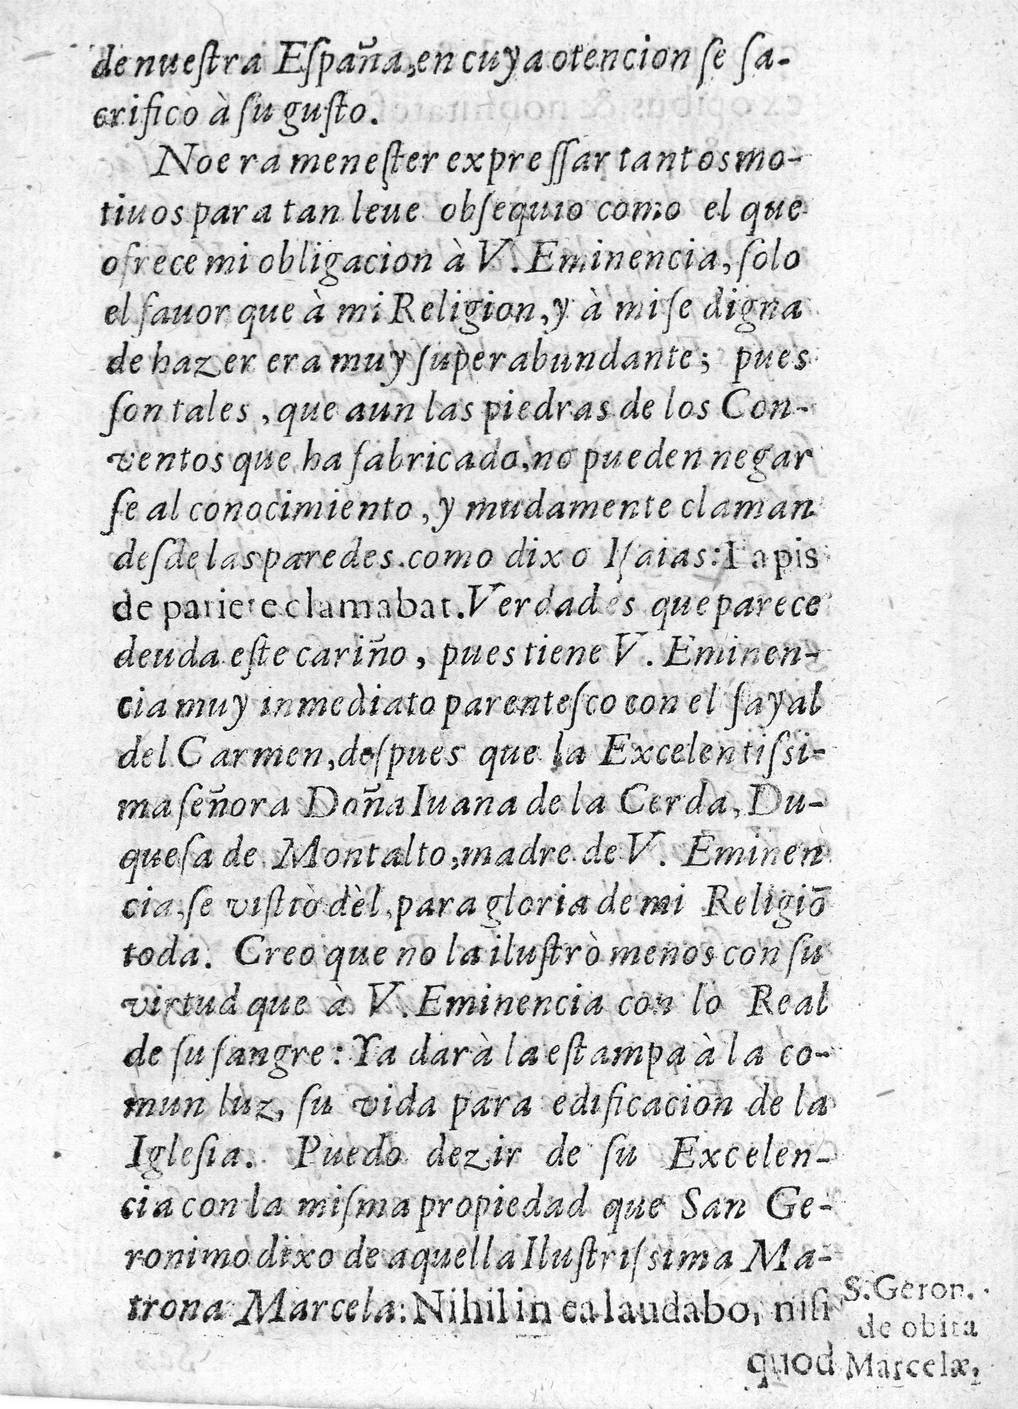 de nueſtra Eſpaña, en cuya otencion ſe ſa-
crifico à ſu guſto.
No era meneſter expreſſar tantos mo-
tiuos para tan leue obſequio como el que
ofrece mi obligacion à V. Eminencia, ſolo
el fauor que à mi Religion, y à mi ſe digna
de hazer era muy ſuperabundante; pues
ſon tales, que aun las piedras de los Con-
ventos que ha fabricado, no pueden negar
ſe al conocimiento, y mudamente claman
deſde las paredes. como dixo Iſaias: Lapis
de pariete clamabat. Verdades que parece
deuda eſte cariño, pues tiene V. Eminen-
cia muy inmediato parenteſco con el ſayal
del Carmen, deſpues que la Excelentiſsi-
ma ſeñora Doña Iuana de la Cerda, Du-
queſa de Montalto, madre de V. Eminen
cia, ſe viſtiò dèl, para gloria de mi Religiō
toda. Creo que no la iluſtrò menos con ſu
virtud que à V. Eminencia con lo Real
de ſu ſangre: Ya darà la eſtampa à la co-
mun luz, ſu vida para edificacion de la
Igleſia. Puedo dezir de ſu Excelen-
cia con la miſma propiedad que San Ge-
ronimo dixo de aquella Iluſtriſsima Ma-
trona Marcela: Nihil in ea laudabo, niſi
quod
S. Geron.
de obita
Marcelæ,